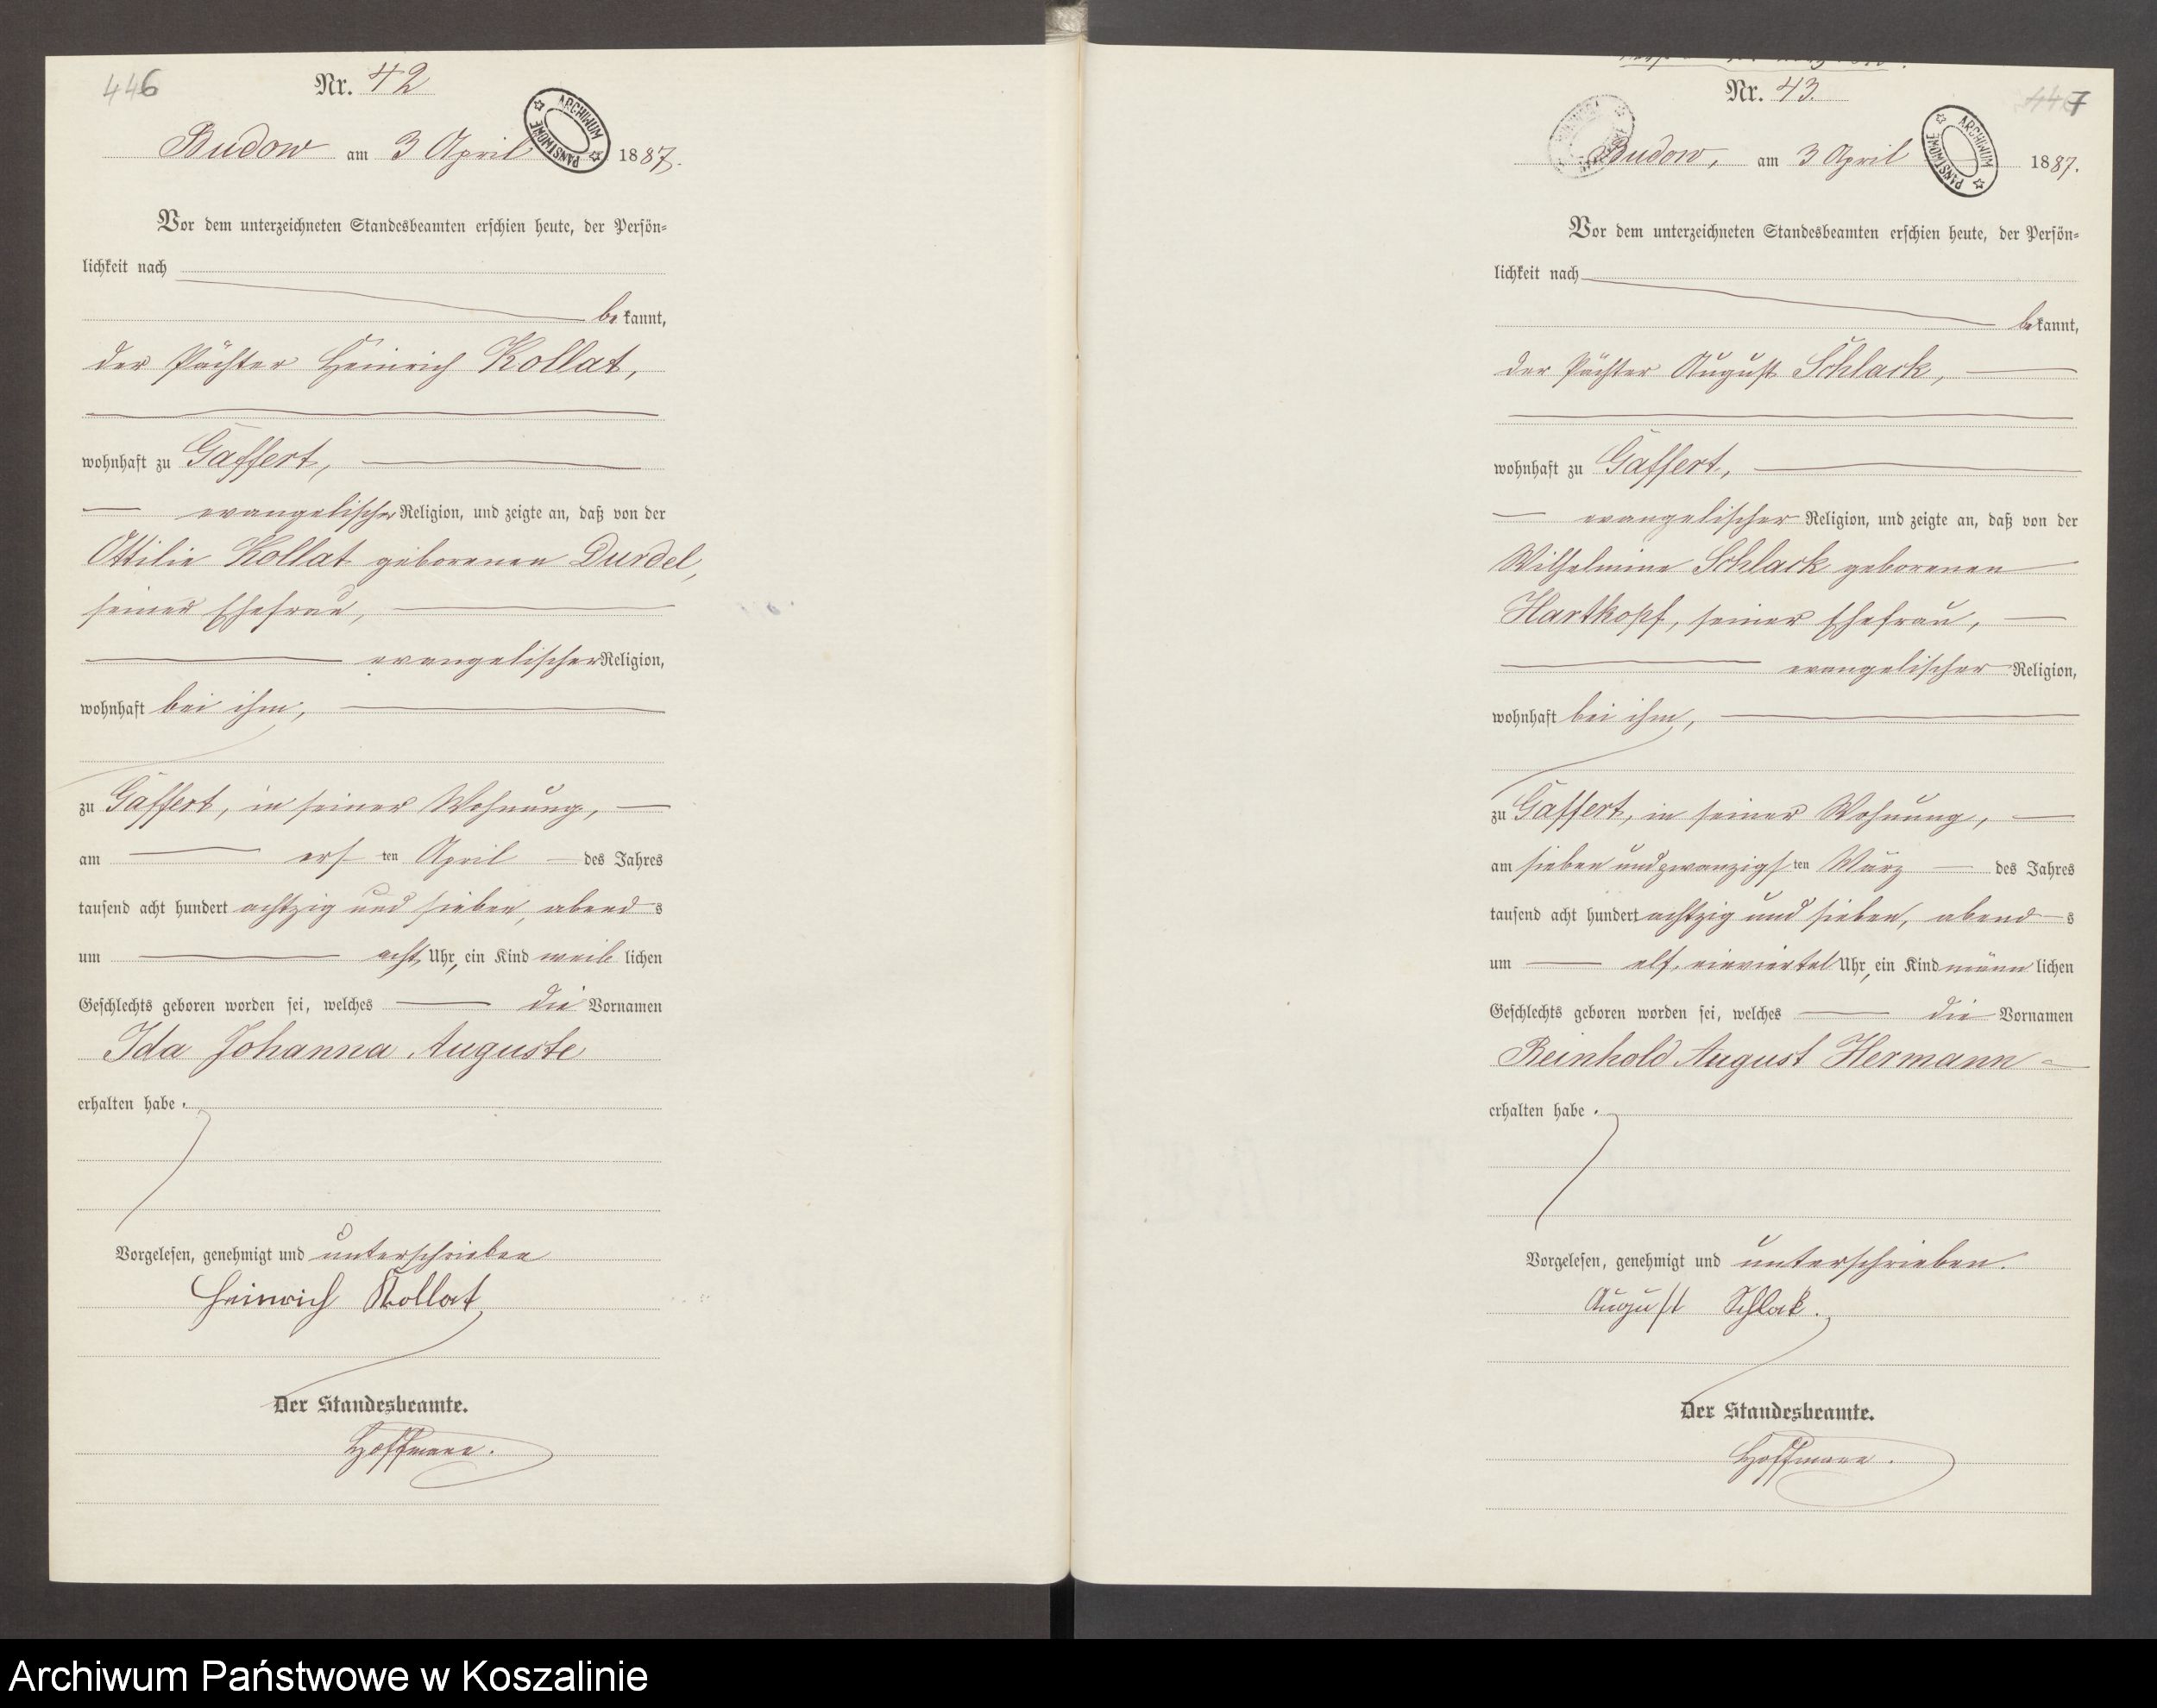 446
Nr. 42
ARCHIWUM PAŃSTWOWE
Budow am 3 April 1887.
Vor dem unterzeichneten Standesbeamten erschien heute, der Persön-
lichkeit nach
bekannt,
der Pächter Heinrich Kollat,
wohnhaft zu Gaffert,
evangelischer Religion, und zeigte an, daß von der
Ottilie Kollat geborenen Durdel,
seiner Ehefrau,
evangelischer Religion,
wohnhaft bei ihm,
zu Gaffert, in seiner Wohnung,
am ersten April des Jahres
tausend acht hundert achtzig und sieben, abends
um acht Uhr, ein Kind weiblichen
Geschlechts geboren worden sei, welches die Vornamen
Ida Johanna Auguste
erhalten habe.
Vorgelesen, genehmigt und unterschrieben
Heinrich Kollat
Der Standesbeamte.
Hoffmann.
Nr. 43.
447
ARCHIWUM PAŃSTWOWE
Budow, am 3 April 1887.
Vor dem unterzeichneten Standesbeamten erschien heute, der Persön-
lichkeit nach
bekannt,
der Pächter August Schlack,
wohnhaft zu Gaffert,
evangelischer Religion, und zeigte an, daß von der
Wilhelmine Schlack geborenen
Hartkopf, seiner Ehefrau,
evangelischer Religion,
wohnhaft bei ihm,
zu Gaffert, in seiner Wohnung,
am sieben und zwanzigsten März des Jahres
tausend acht hundert achtzig und sieben, abends
um elf, einviertel Uhr, ein Kind männlichen
Geschlechts geboren worden sei, welches die Vornamen
Reinhold August Hermann
erhalten habe.
Vorgelesen, genehmigt und unterschrieben.
August Schlak.
Der Standesbeamte.
Hoffmann.
Archiwum Państwowe w Koszalinie